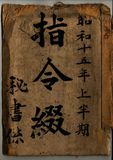 昭和十五年上半期
指令綴
秘書係